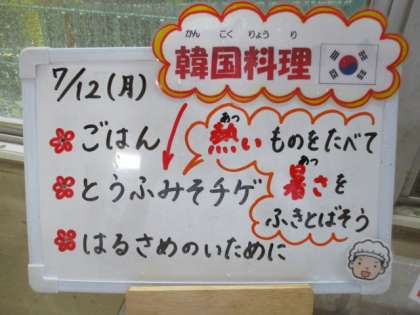 かん こく りょう り
韓国料理
7/12(月)
ごはん
とうふみそチゲ
はるさめのいために
あつ
熱いものをたべて
あつ
暑さを
ふきとばそう